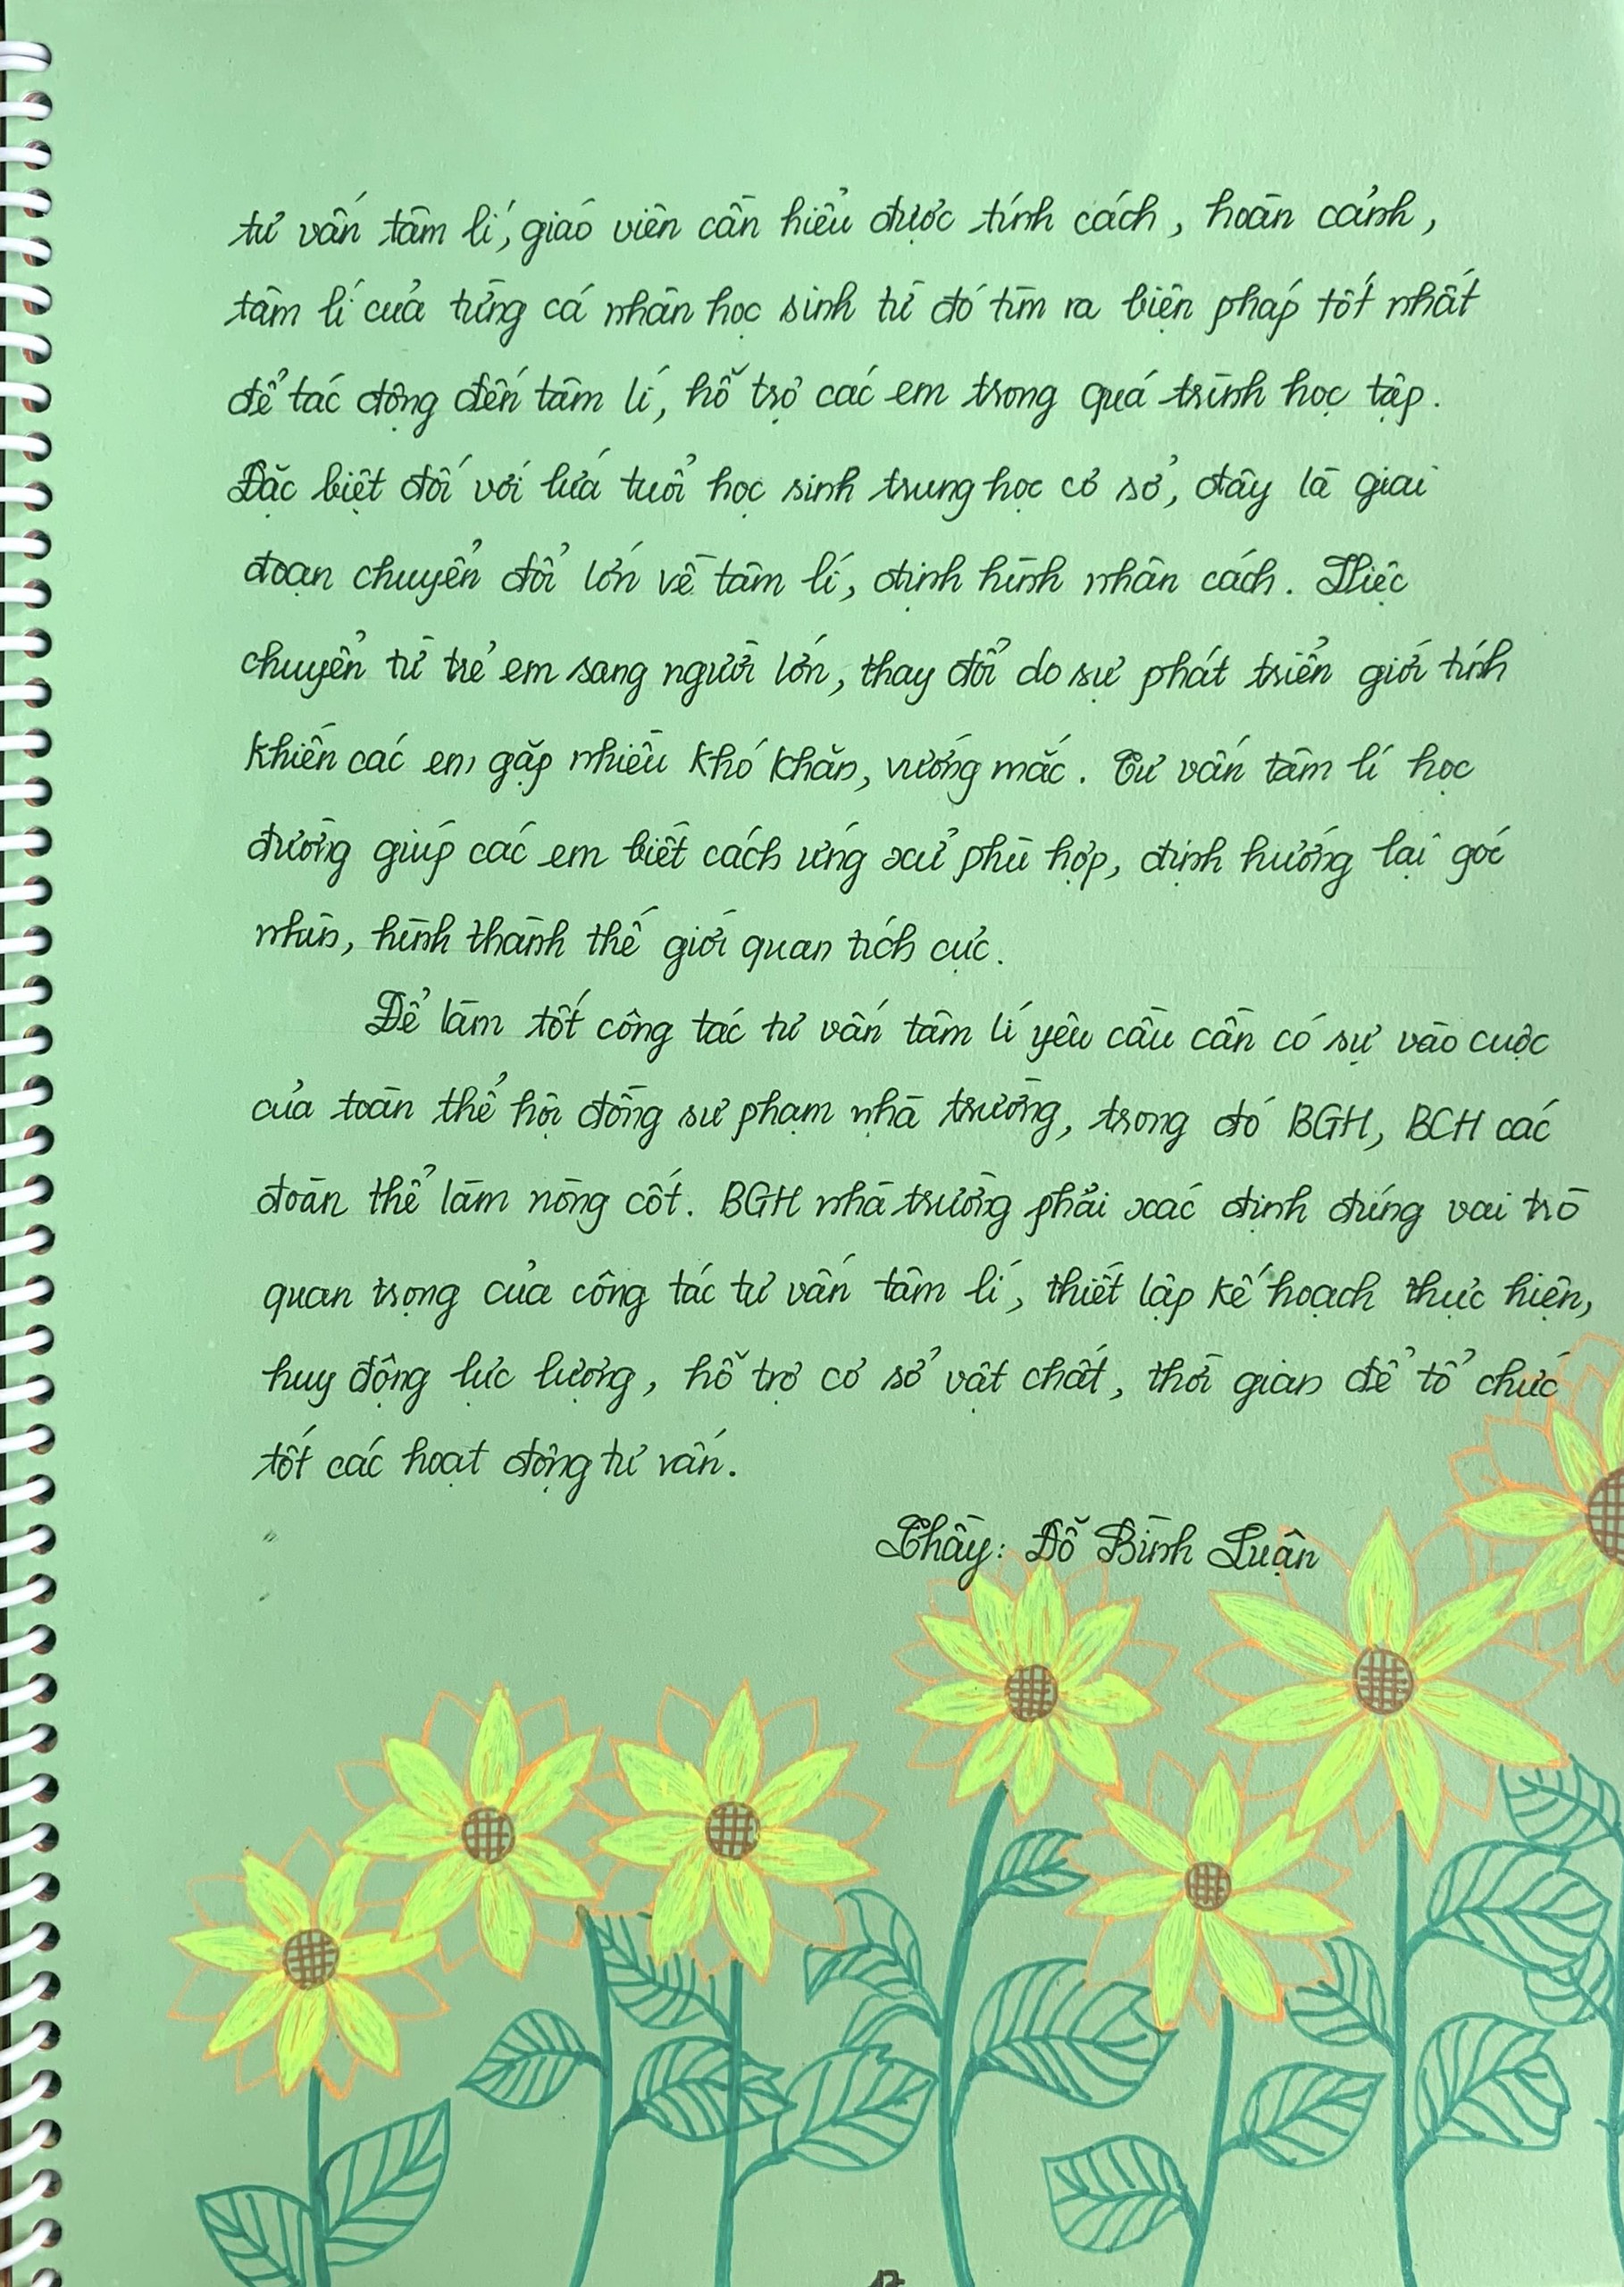 tư vấn tâm lí, giáo viên cần hiểu được tính cách, hoàn cảnh,
tâm lí của từng cá nhân học sinh từ đó tìm ra biện pháp tốt nhất
để tác động đến tâm lí, hỗ trợ các em trong quá trình học tập.
Đặc biệt đối với lứa tuổi học sinh trung học cơ sở, đây là giai
đoạn chuyển đổi lớn về tâm lí, định hình nhân cách. Việc
chuyển từ trẻ em sang người lớn, thay đổi do sự phát triển giới tính
khiến các em gặp nhiều khó khăn, vướng mắc. Tư vấn tâm lí học
đường giúp các em biết cách ứng xử phù hợp, định hướng lại góc
nhìn, hình thành thế giới quan tích cực.
Để làm tốt công tác tư vấn tâm lí yêu cầu cần có sự vào cuộc
của toàn thể hội đồng sư phạm nhà trường, trong đó BGH, BCH các
đoàn thể làm nòng cốt. BGH nhà trường phải xác định đúng vai trò
quan trọng của công tác tư vấn tâm lí, thiết lập kế hoạch thực hiện,
huy động lực lượng, hỗ trợ cơ sở vật chất, thời gian để tổ chức
tốt các hoạt động tư vấn.
Thầy: Đỗ Bình Luận